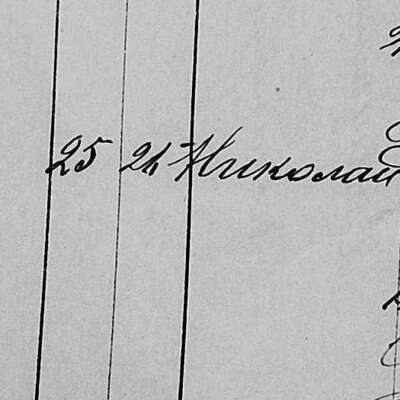 25 24 Николай